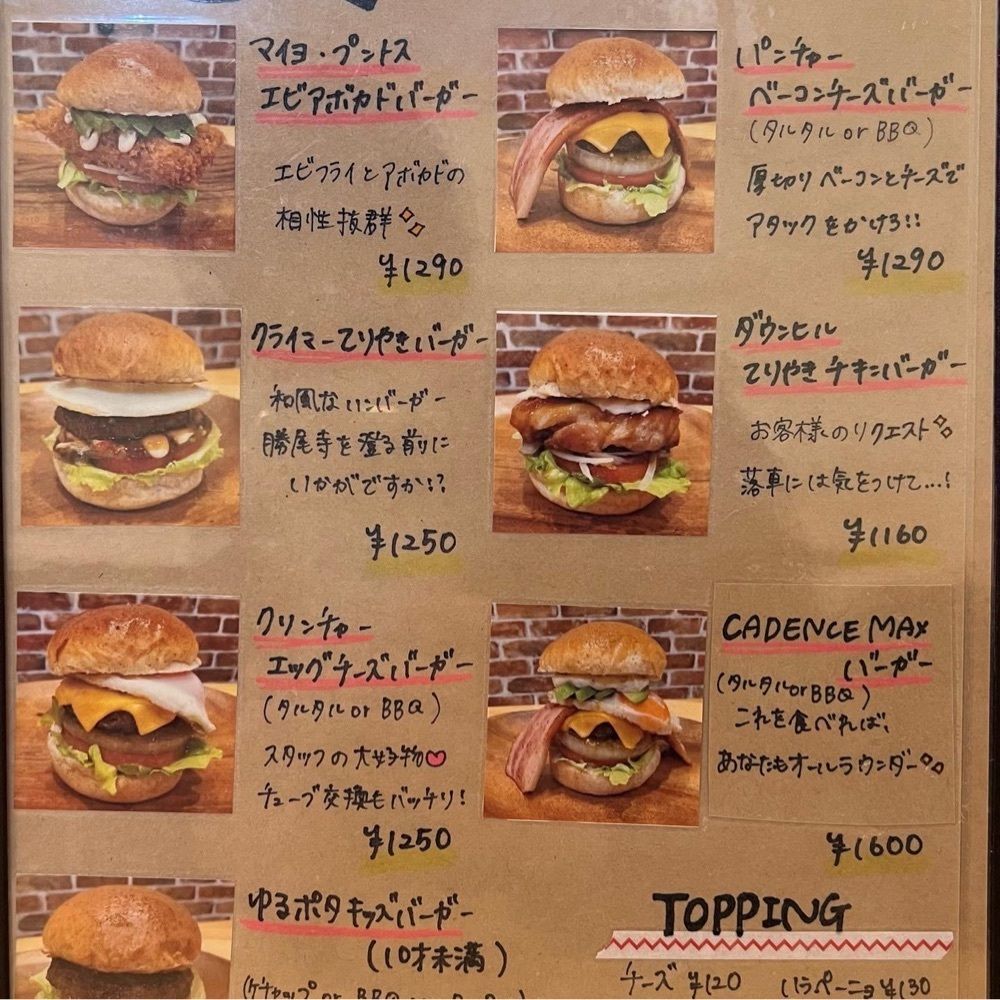 マイヨ・プントス
エビアボカドバーガー
エビフライとアボカドの
相性抜群
¥1290
パンチャー
ベーコンチーズバーガー
(タルタル or BBQ)
厚切りベーコンとチーズで
アタックをかけろ!!
¥1290
クライマーてりやきバーガー
和風なハンバーガー
勝尾寺を登る前に
いかがですか!?
¥1250
ダウンヒル
てりやきチキンバーガー
お客様のリクエスト
落車には気をつけて...!
¥1160
クリンチャー
エッグチーズバーガー
(タルタル or BBQ)
スタッフの大好物
チューブ交換もバッチリ!
¥1250
CADENCE MAX
バーガー
(タルタル or BBQ)
これを食べれば、
あなたもオールラウンダー
¥1600
ゆるポタキッズバーガー
(10才未満)
(ケチャップ or BBQ
TOPPING
チーズ ¥120
ハラペーニョ ¥130